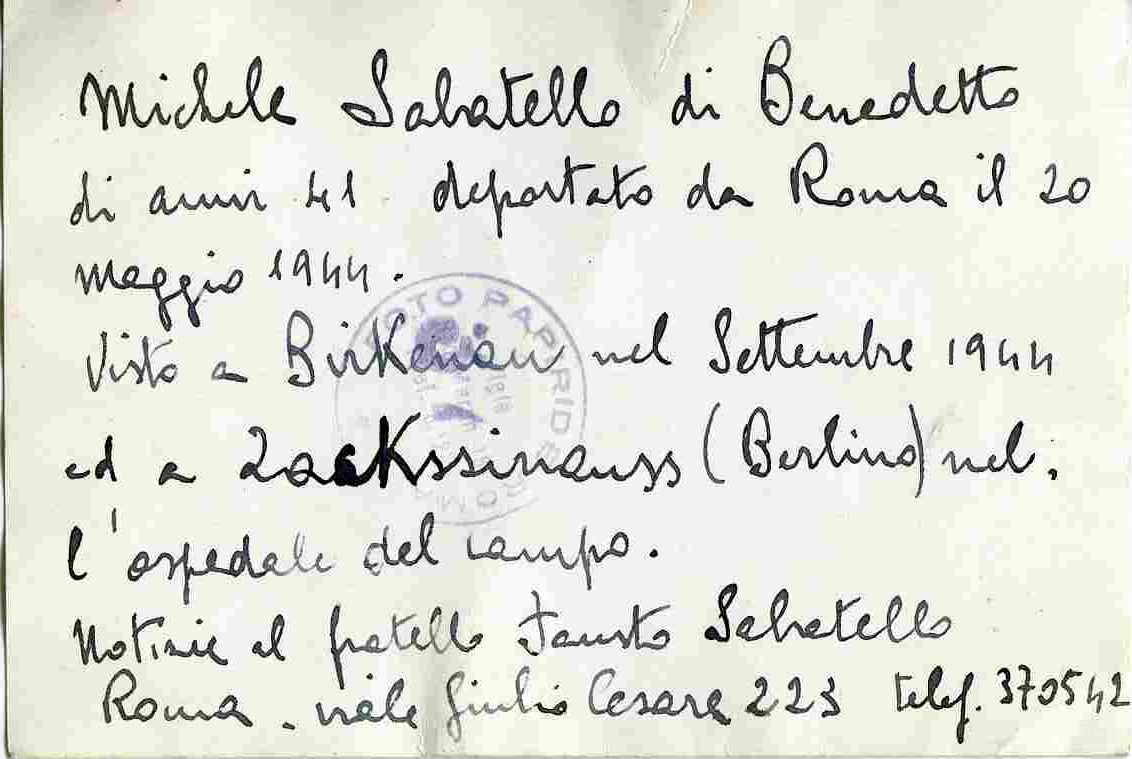 Michele Sabatello di Benedetto
di anni 41 deportato da Roma il 20
maggio 1944.
Visto a Birkenau nel Settembre 1944
ed a (Berlino) nel.
l'ospedale del campo.
Notizie al fratello Fausto Sabatello
Roma - viale Giulio Cesare 223 telef. 370542
FOTO PAP ROMA